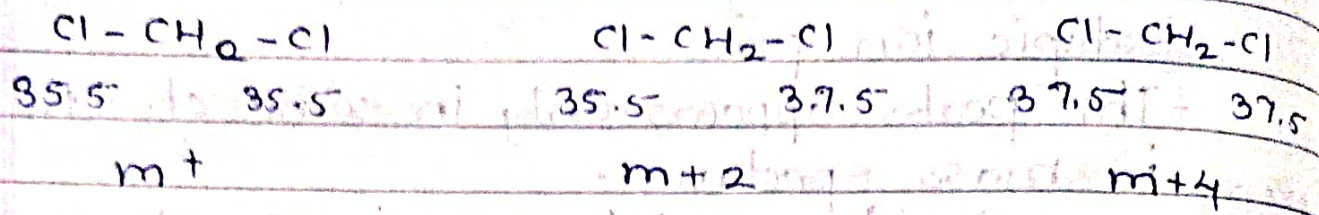 Cl - CH2 - Cl Cl - CH2 - Cl Cl - CH2 - Cl
35.5 35.5 35.5 37.5 37.5 37.5
m+ m+2 m+4